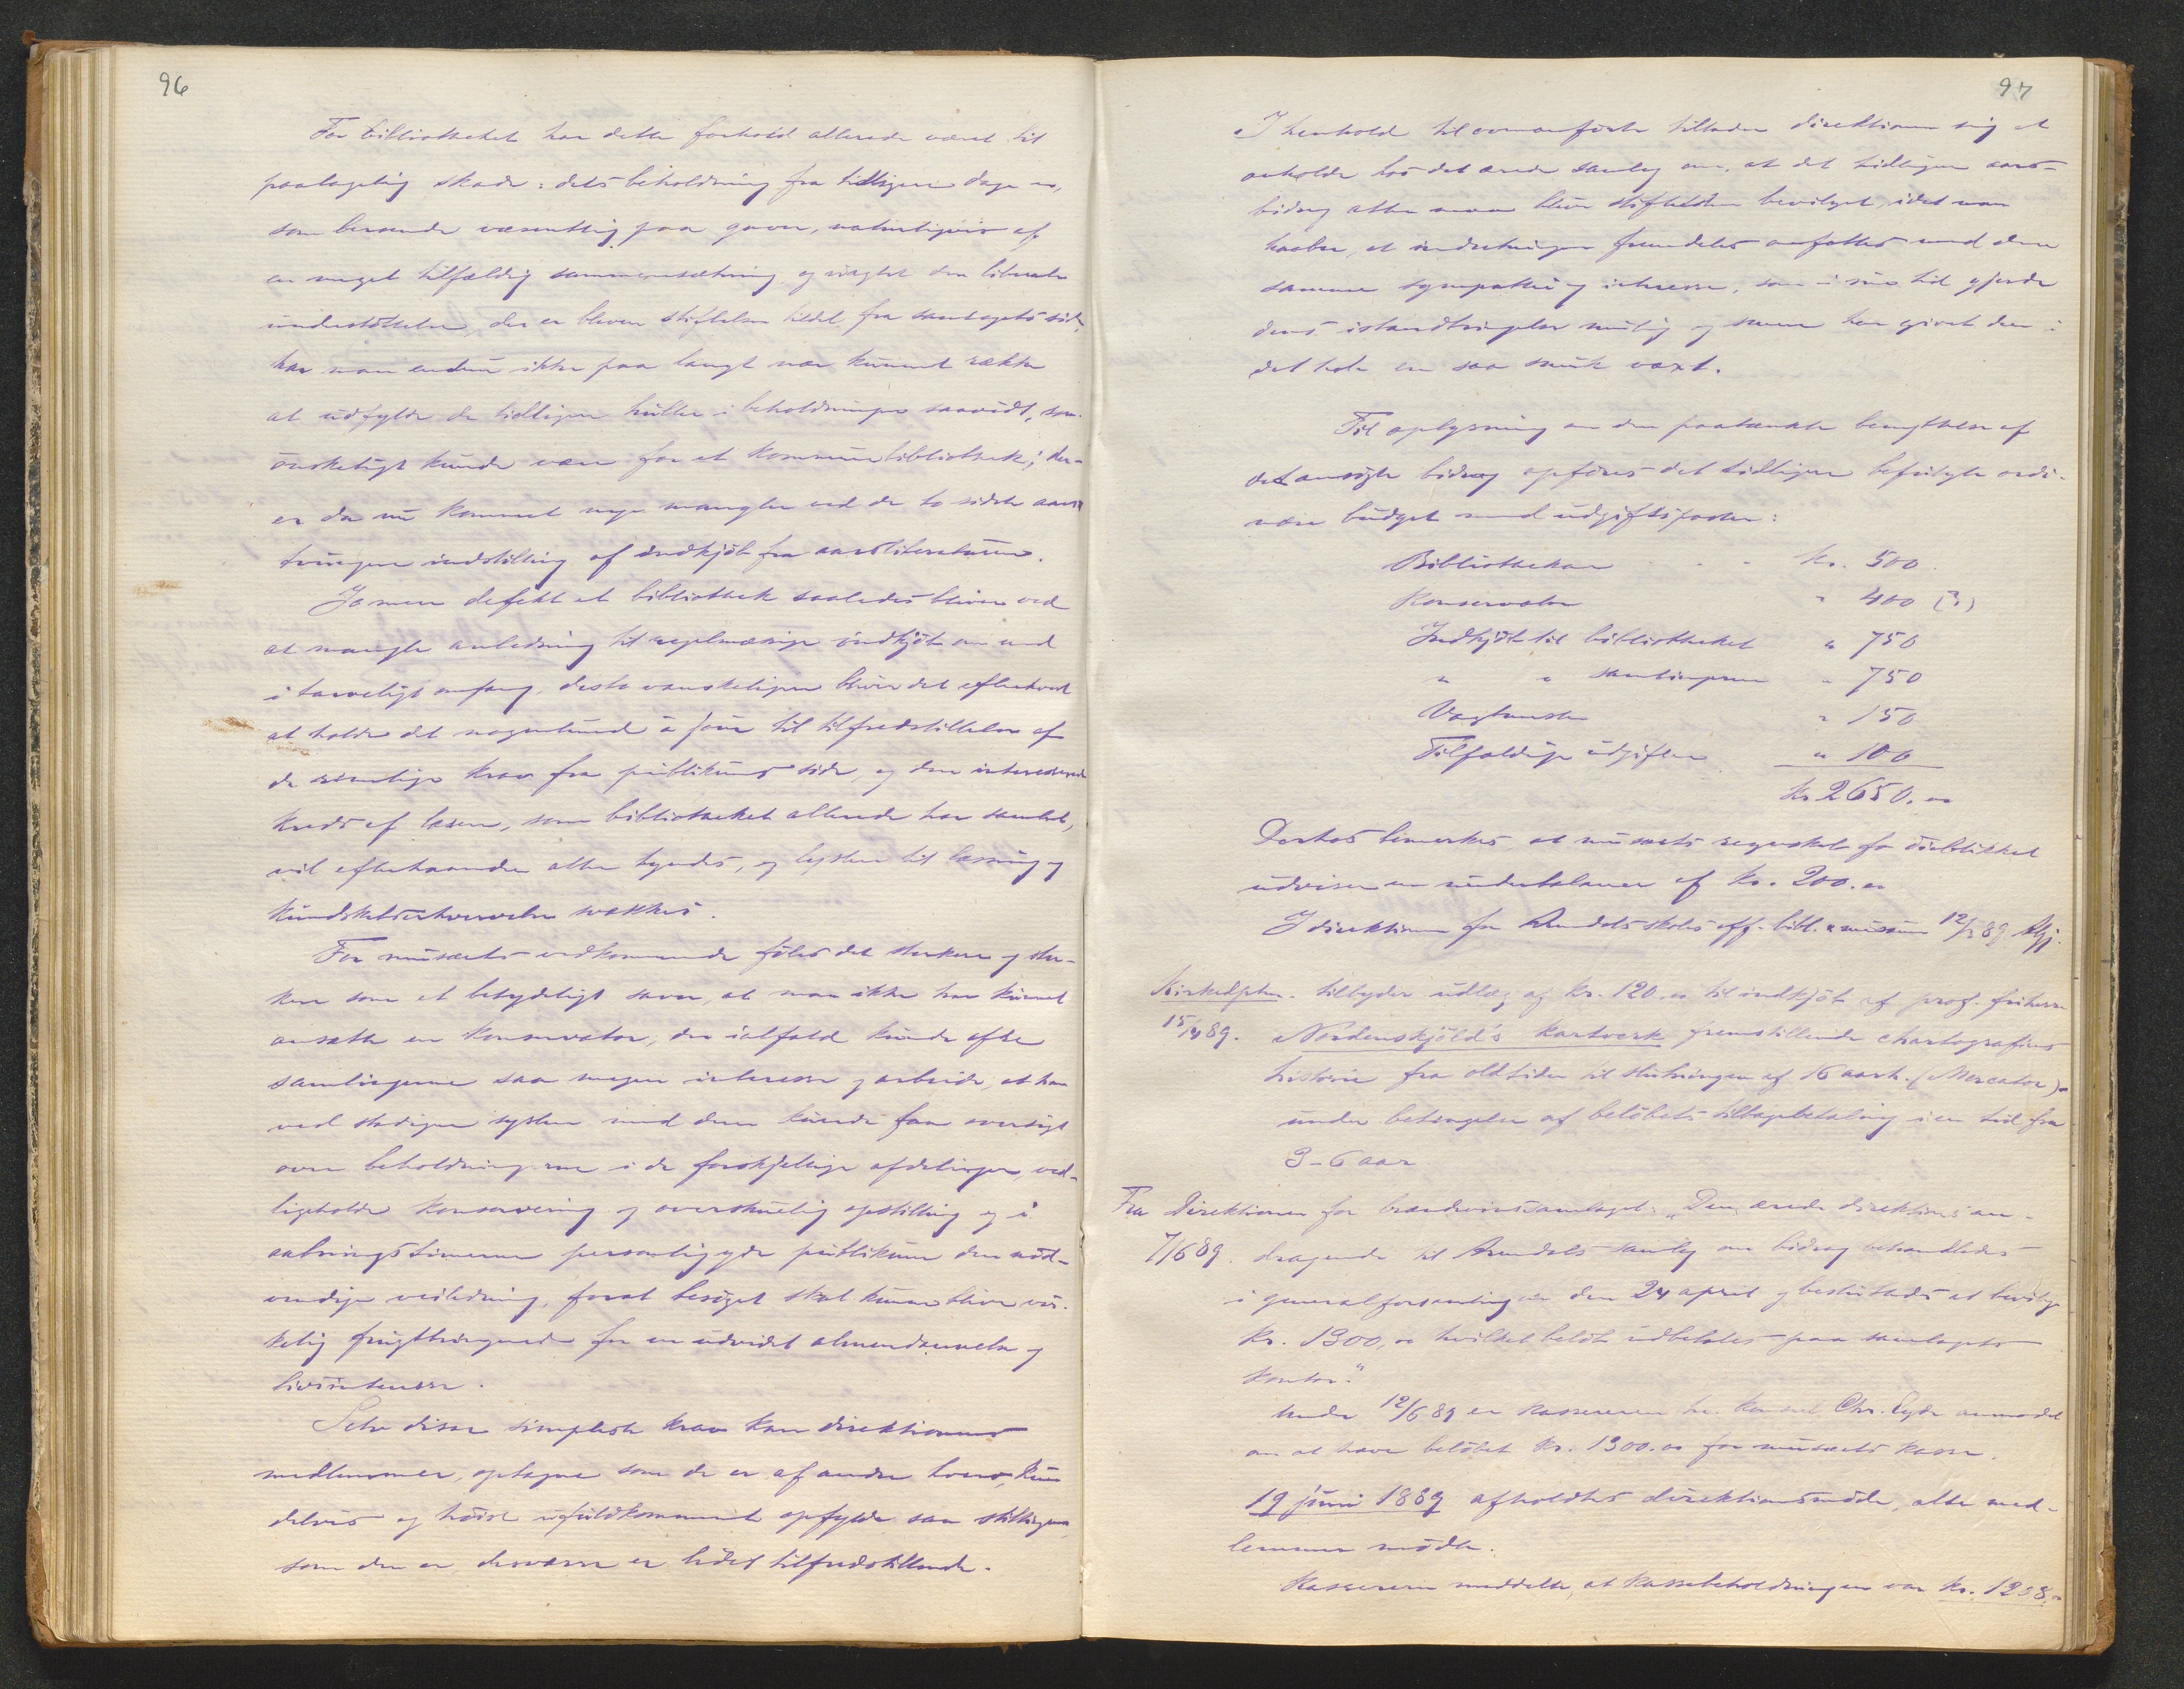 96
For bibliotheket har dette forhold allerede været til
paatagelig skade: dets beholdning fra tidligere dage er,
som beroende væsentlig paa gaver, naturligvis af
en meget tilfældig sammensætning og uagtet den liberale
understøttelse, der er bleven stiftelsen tildel fra samlagets side,
har man endnu ikke paa langt nær kunnet række
at udfylde de tidligere huller i beholdningen saavidt, som
ønskeligt kunde være for et kommunebibliothek; der-
er da nu kommet nye mangler ved de to sidste aars
tvungne indstilling af indkjøb fra aarsliteraturen.
Jo mere defekt et bibliothek saaledes bliver ved
at mangle anledning til regelmæssige indkjøb om end
i tarveligt omfang, desto vanskeligere bliver det efterhvert
at holde det nogenlunde à jour til tilfredsstillelse af
de rimelige krav fra publikums side, og den interesserede
kreds af læsere, som bibliotheket allerede har samlet,
vil efterhaanden atter tyndes, og lysten til læsning og
kundskabserhvervelse svækkes.
For musæets vedkommende føles det sterkere og ster-
kere som et betydeligt savn, at man ikke har kunnet
ansætte en konservator, der ialfald kunde ofre
samlingerne saa megen interesse og arbeide, at han
ved stadigen syslen med dem kunde faa oversigt
over beholdningerne i de forskjellige afdelinger, ved-
ligeholde konservering og overskuelig opstilling og i
aabningstimerne personlig yde publikum den nød-
vendige veiledning, forat besøget skal kunne blive vir-
kelig frugtbringende for en udvidet almendannelse og
livsinteresse.
Selv disse simpleste krav kan direktionens
medlemmer, optagne som de er af andre hverv, kun
delvis og høist ufuldkomment opfylde saa stillingen,
som den er, desværre er lidet tilfredsstillende.
97
I henhold til ovenanførte tillader direktionen sig at
anholde hos det ærede samlag om, at det tidligere aars-
bidrag atter maa blive stiftelsen bevilget, idet man
haaber, at indretningen fremdeles omfattes med den
samme sympathi og interesse, som i sin tid gjorde
dens istandbringelse mulig og senere har givet den i
det hele en saa smuk vext.
Til oplysning om den paatænkte benyttelse af
det ansøgte bidrag opføres det tidligere befulgte ordi-
nære budget med udgiftsposter:
Bibliothekar . . . kr. 500
Konservator " 400 (?)
Indkjøb til bibliotheket " 750
" " samlingerne " 750
Vagtmester " 150
Tilfældige udgifter " 100
kr 2650.00
Derhos bemerkes at musæets regnskab for øieblikket
udviser en underbalance af kr. 200.00
I direktionen for Arendals skoles off. bibl. & musæum 12/3 89
tilbyder udlæg af kr. 120.00 til indkjøb af prof. friherre
15/4 89. Nordenskjöld's kartverk fremstillende chartografiens
historie fra oldtiden til slutningen af 16 aarh. (Mercator)
under betingelse af beløbets tilbagebetaling i en tid fra
3-6 aar
Fra Direktionen for brændevinssamlaget: „Den ærede direktions an-
7/6 89. dragende til Arendals samlag om bidrag behandledes
i generalforsamlingen den 24 april og besluttedes at bevilge
kr. 1300,00 hvilket beløb udbetales paa samlagets
kontor."
Under 12/6 89 er kassereren hr. konsul Chr. Eyde anmodet
om at hæve beløbet kr. 1300.00 for musæets kasse.
19 juni 1889 afholdtes direktionsmøde, alle med-
lemmer mødte.
Kassereren meddelte, at kassebeholdningen var kr. 1238.